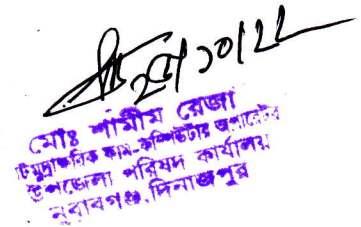 ২৫/১০/২২
মোঃ শামীম রেজা
সাঁটমুদ্রাক্ষরিক কাম-কম্পিউটার অপারেটর
উপজেলা পরিষদ কার্যালয়
নবাবগঞ্জ, দিনাজপুর